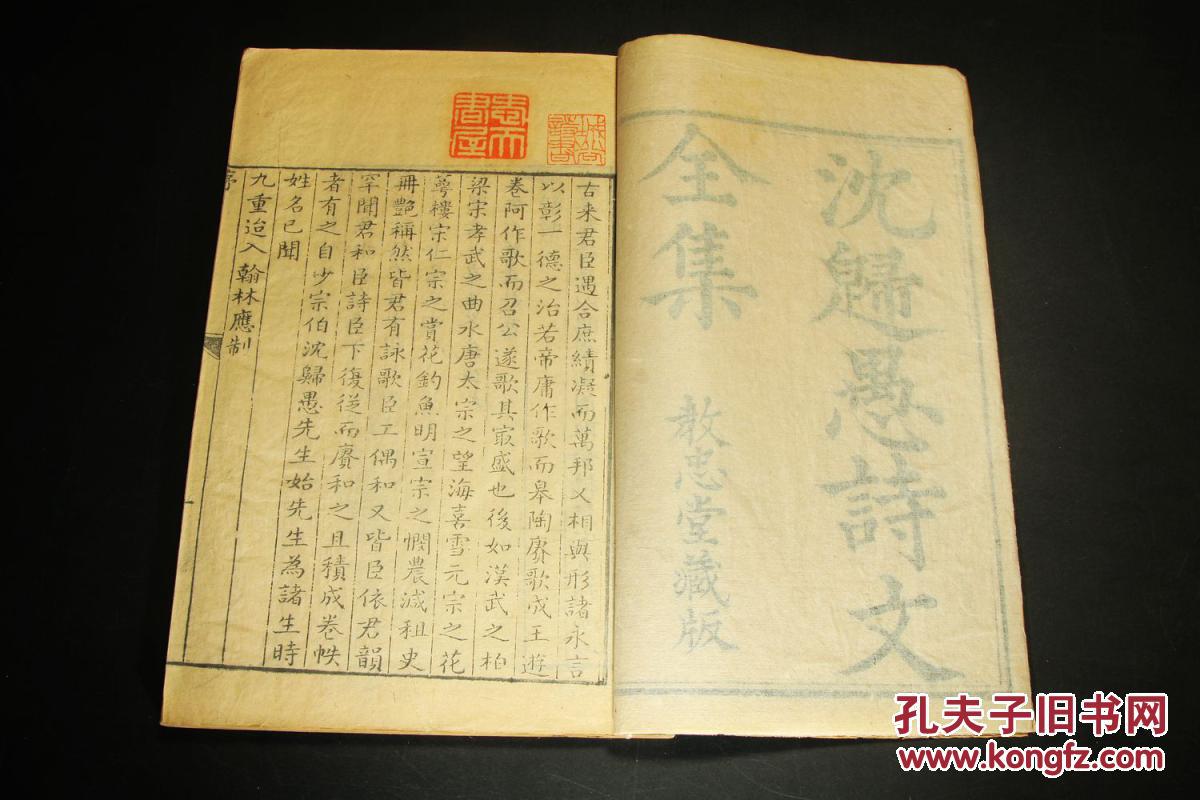 沈歸愚詩文
全集
教忠堂藏版
古来君臣遇合庶績凝而萬邦乂相與形諸永言
以彰一德之治若帝庸作歌而皋陶賡歌成王遊
卷阿作歌而召公遂歌其冣盛也後如漢武之柏
梁宋孝武之曲水唐太宗之望海喜雪元宗之花
萼樓宗仁宗之賞花釣魚明宣宗之憫農減租史
冊艷稱然皆君有詠歌臣工偶和又皆臣依君韻
罕聞君和臣詩臣下復從而賡和之且積成卷帙
者有之自少宗伯沈歸愚先生始先生為諸生時
姓名已聞
九重迨入翰林應制
序
書屋
孔夫子旧书网
www.kongfz.com